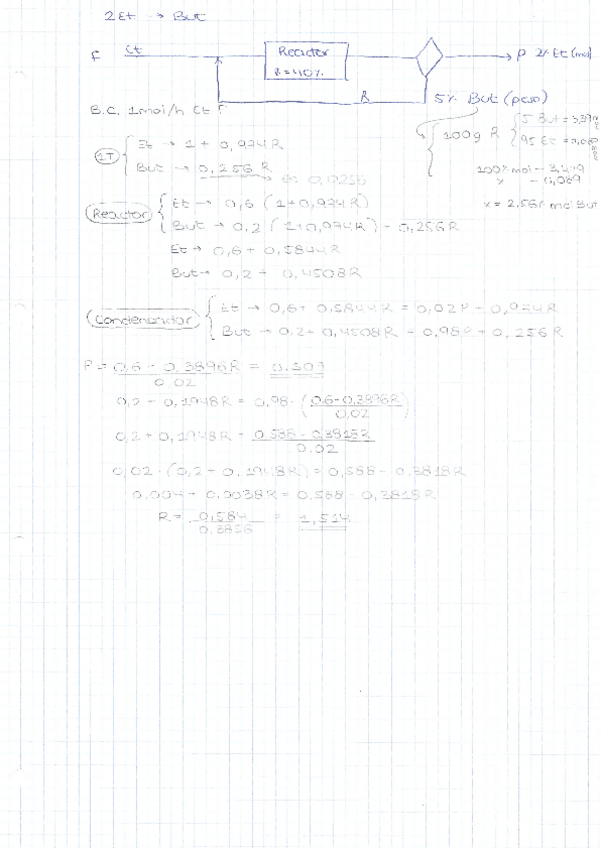 2Et → But
F Et Reactor P 2% Et (mol)
X=40%
R 5% But (peso)
B.C. 1mol/h Et F
100g R { 5 But =
95 Et =
1T { Et → 1 + 0,974R
But → 0,256R
100% mol -
x -
x = 2,56% mol But
Reactor { Et → 0,6 (1+0,974R)
But → 0,2 (1+0,974R) + 0,256R
Et → 0,6 + 0,5844R
But → 0,2 + 0,4508R
Condensador { Et → 0,6 + 0,5844R = 0,02P + 0,974R
But → 0,2 + 0,4508R = 0,98P + 0,256R
P = 0,6 - 0,3896R = 0.507
0,02
0,2 + 0,1948R = 0,98 · (0,6-0,3896R)
0,02
0,2 + 0,1948R = 0,588 - 0,3818R
0.02
0,02 · (0,2 + 0,1948R) = 0,588 - 0,3818R
0,004 + 0,0038R = 0,588 - 0,3818R
R = 0,584 = 1,514
0,3856